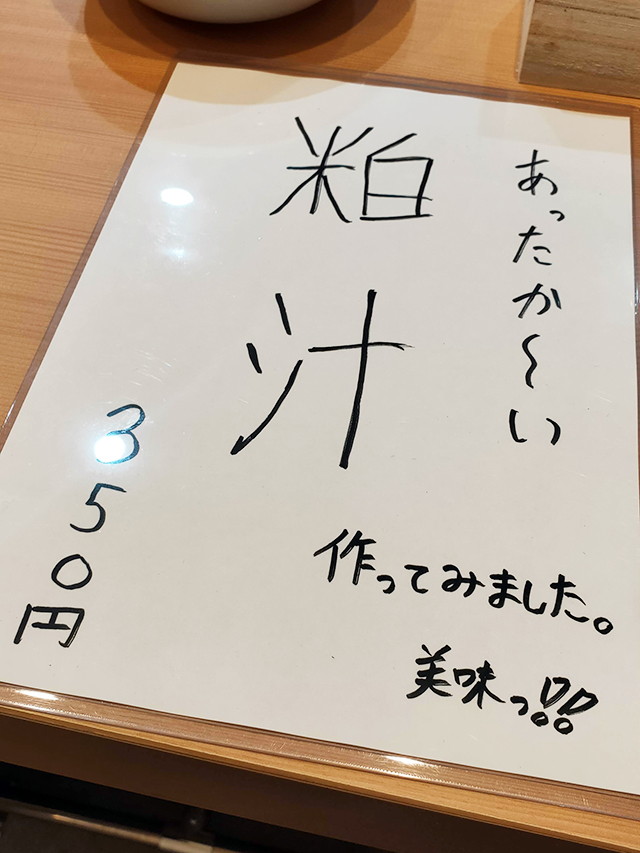 あったか〜い
粕汁
350円
作ってみました。
美味っ!!